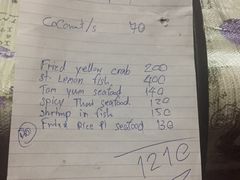 Coconut/s 70
Fried yellow crab 200
St. Lemon fish 400
Tom yum seafood 140
Spicy Thai seafood 120
Shrimp in fish 150
Fried Rice seafood 130
1210